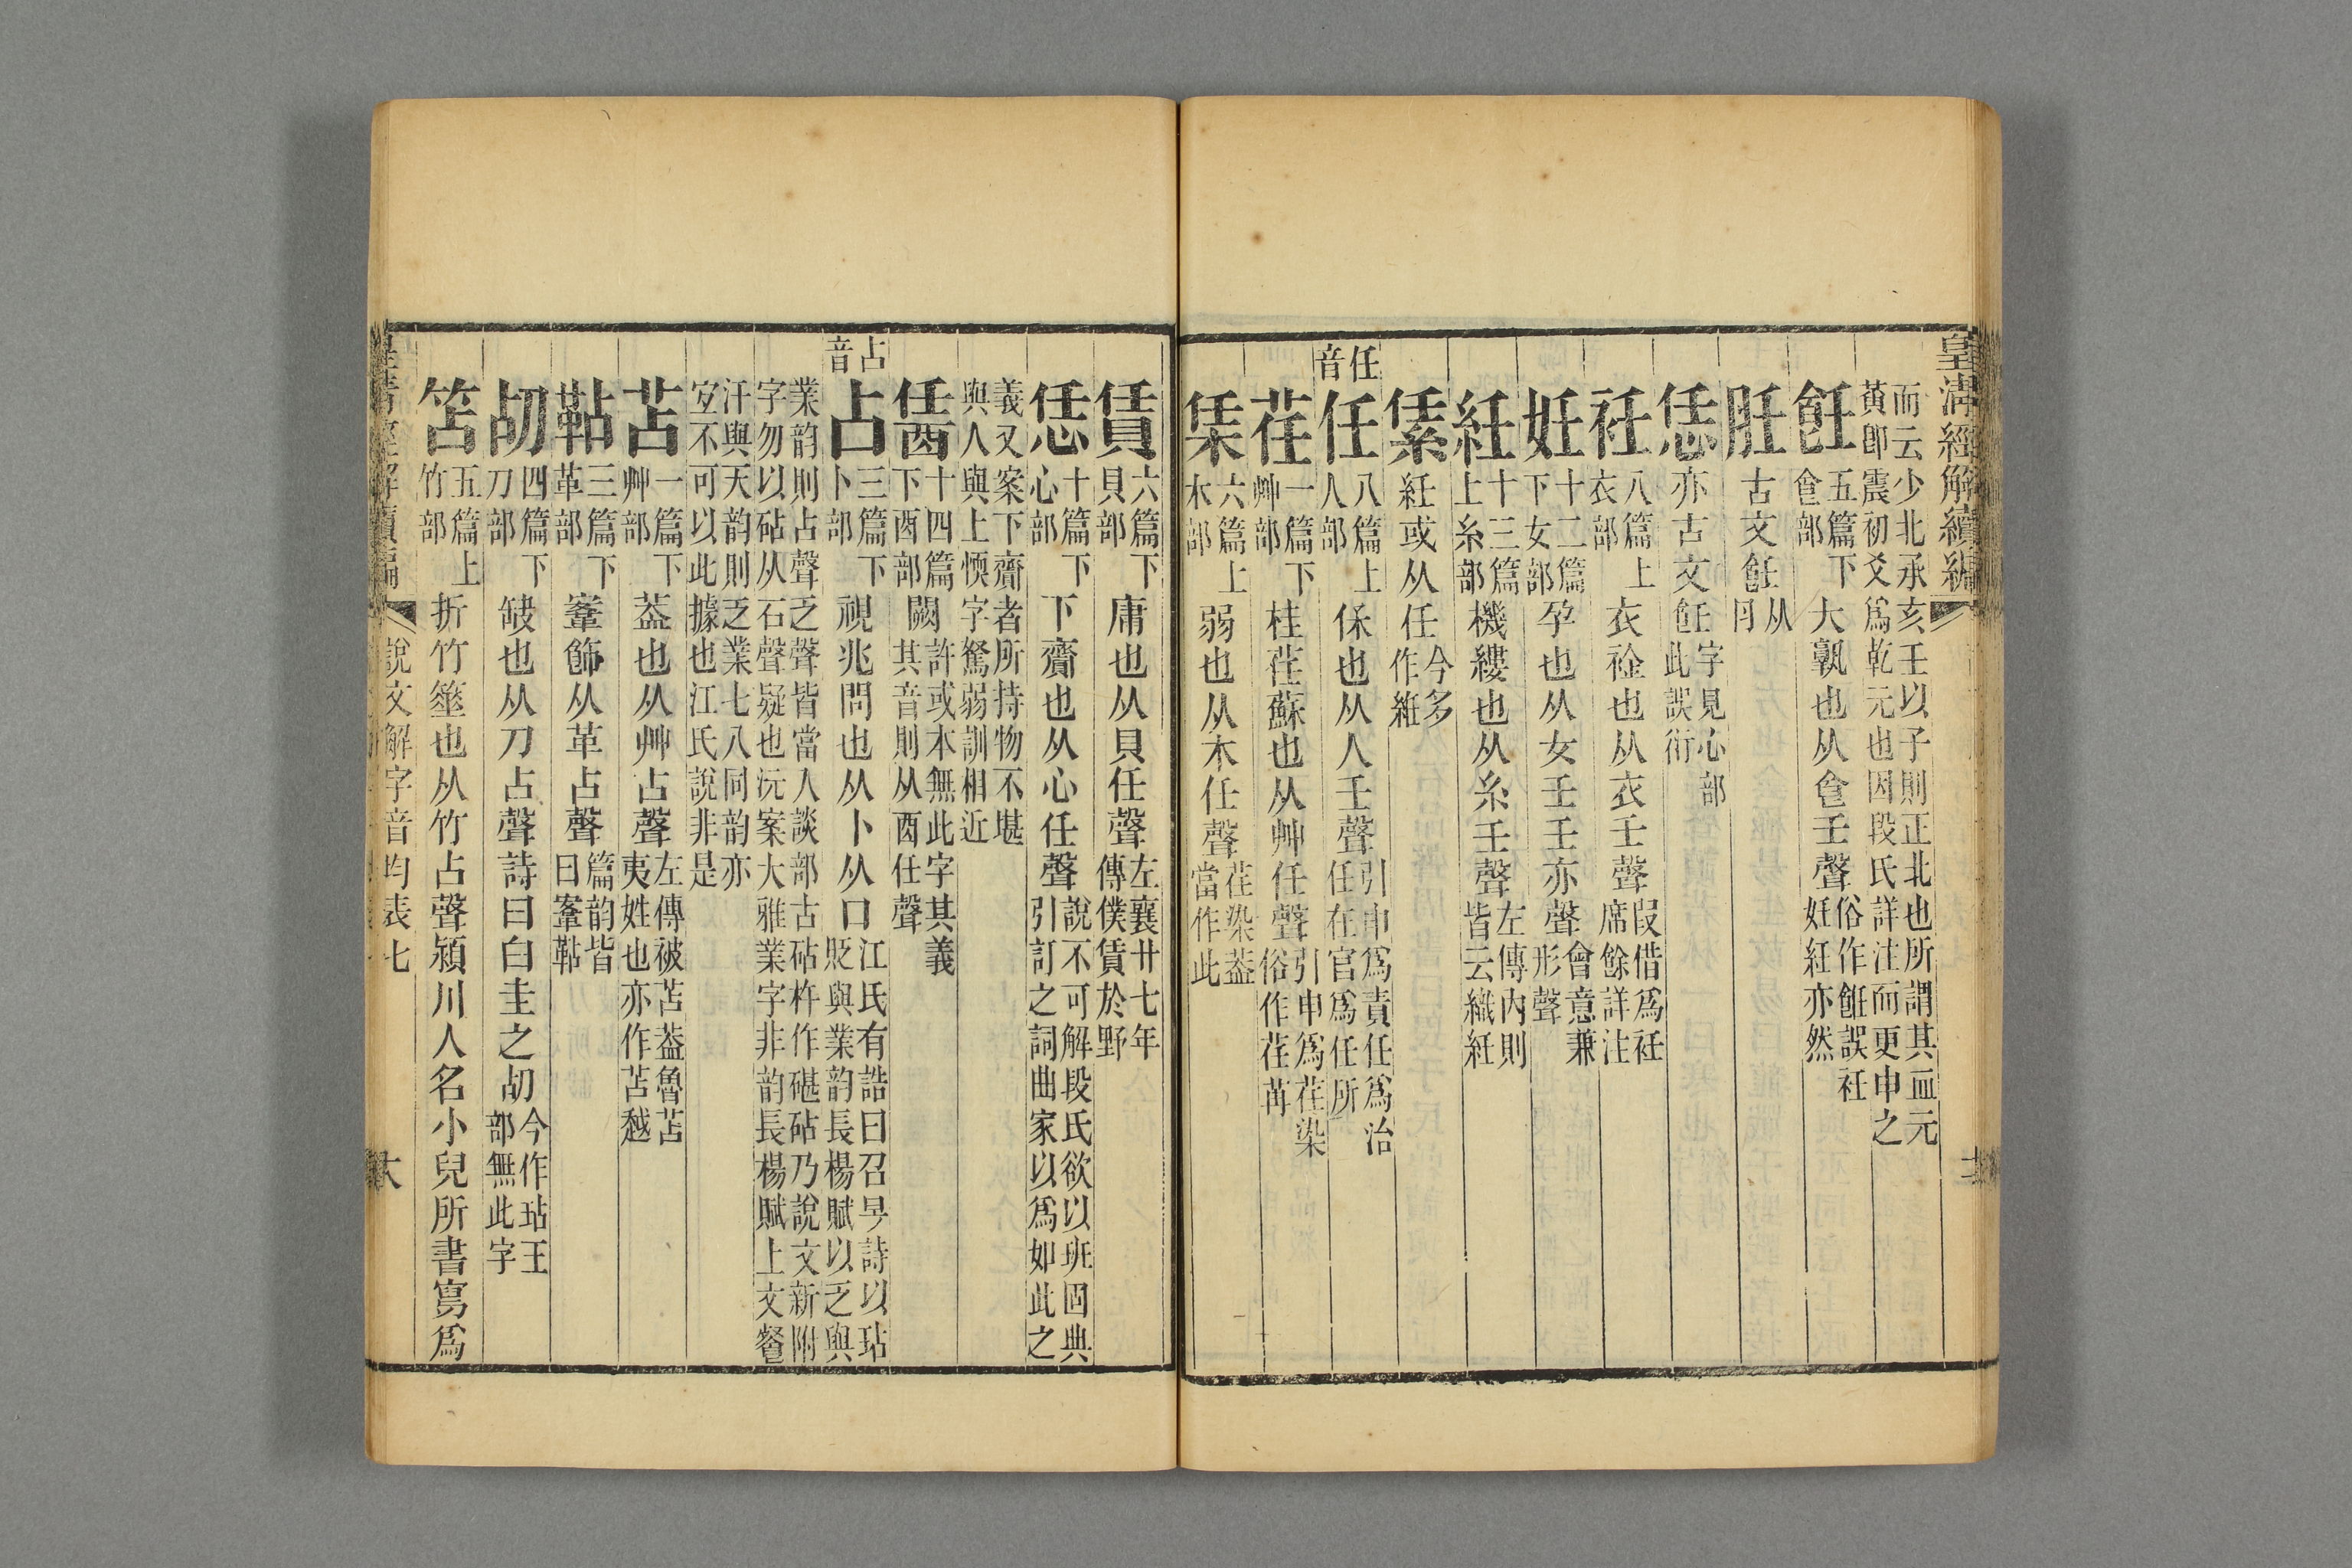 皇清經解續編
而云少北承亥壬以子則正北也所謂其血元
黃卽震初爻爲乾元也因段氏詳注而更申之
飪五篇下𠊊部大孰也从𠊊壬聲俗作餁誤衽妊紝亦然
肚古文飪从肉
恁亦古文飪字見心部此誤衍
衽八篇上衣部衣䘳也从衣壬聲叚借爲衽席餘詳注
妊十二篇下女部孕也从女壬壬亦聲會意兼形聲
紝十三篇上糸部機縷也从糸壬聲左傳內則皆云織紝
𦀽紝或从任今多作維
任音
任八篇上人部保也从人壬聲引申爲責任爲治任在官爲任所
荏一篇下艸部桂荏蘇也从艸任聲引申爲荏染俗作荏苒
栠六篇上木部弱也从木任聲荏染葢當作此
賃六篇下貝部庸也从貝任聲左襄廿七年傳僕賃於野
恁十篇下心部下齎也从心任聲說不可解段氏欲以班固典引訂之詞曲家以爲如此之
義又案下齎者所持物不堪
與人與上愞字駑弱訓相近
𨡭十四篇下酉部闕許或本無此字其義其音則从酉任聲
占音
占三篇下卜部視兆問也从卜从口江氏有誥曰召旻詩以玷貶與業韵長楊賦以乏與
業韵則占聲乏聲皆當入談部古砧杵作碪砧乃說文新附
字勿以砧从石聲疑也沅案大雅業字非韵長楊賦上文䬸
汗與天韵則乏業七八同韵亦
𡧧不可以此據也江氏說非是
苫一篇下艸部葢也从艸占聲左傳被苫葢魯苫夷姓也亦作苫𧻙
鞊三篇下革部鞌飾从革占聲篇韵皆曰鞌鞊
刮四篇下刀部缺也从刀占聲詩曰白圭之刮今作玷王部無此字
笘五篇上竹部折竹箠也从竹占聲潁川人名小兒所書寫爲
皇清經解續編
說文解字音均表七
大